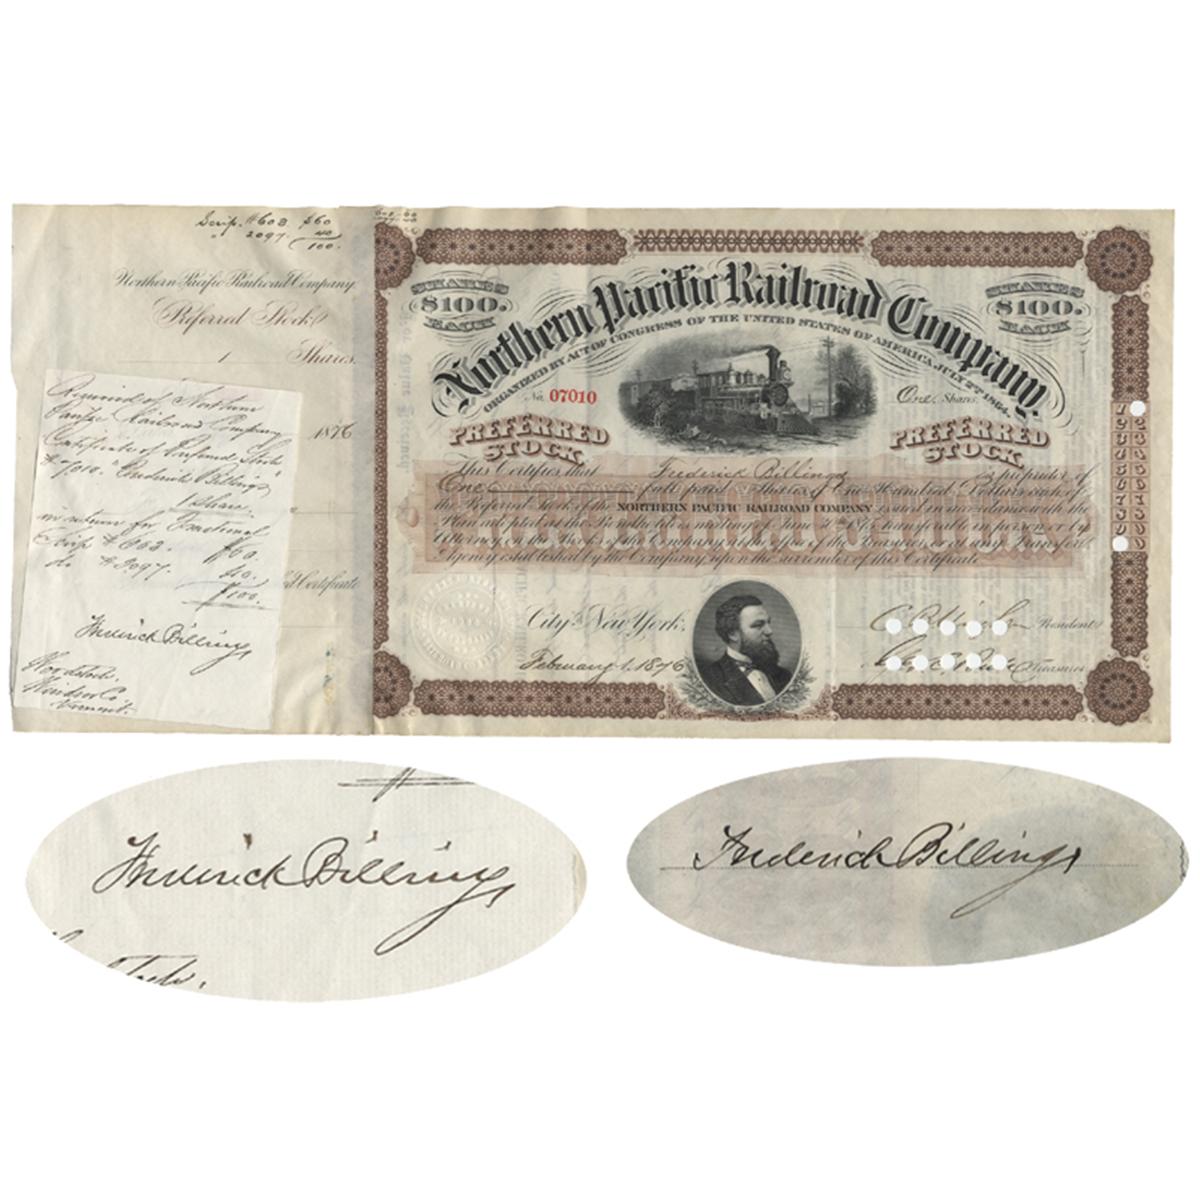 Scrip. #603 $60
" 2097. 40
100.
Northern Pacific Railroad Company.
Preferred Stock
1 Shares.
1876
Received of Northern
Pacific Railroad Company
Certificate of Preferred Stock
#7,010. Frederick Billings
1 Share.
in return for fractional
Scrip #603. $60.
do #2097. $40.
$100.
Frederick Billings
Woodstock.
Windsor Co
Vermont.
Certificate
SHARES
$100.
EACH
Northern Pacific Railroad Company.
ORGANIZED BY ACT OF CONGRESS OF THE UNITED STATES OF AMERICA, JULY 2ND 1864.
SHARES
$100.
EACH
No. 07010
One Shares.
PREFERRED STOCK
PREFERRED STOCK
This Certifies that Frederick Billings is proprietor of
One full paid Shares of One Hundred Dollars each of
the Preferred Stock of the NORTHERN PACIFIC RAILROAD COMPANY issued in accordance with the
Plan adopted at the Bondholders meeting of June 30th 1875, transferable in person or by
Attorney on the Books of the Company at the office of the Treasurer or at any Transfer
Agency established by the Company upon the surrender of this Certificate.
City of New York,
February 1. 1876
President
Treasurer
1 2 3 4 5 6 7 8 9
2 3 4 5 6 7 8 9 0
Frederick Billings
Frederick Billings